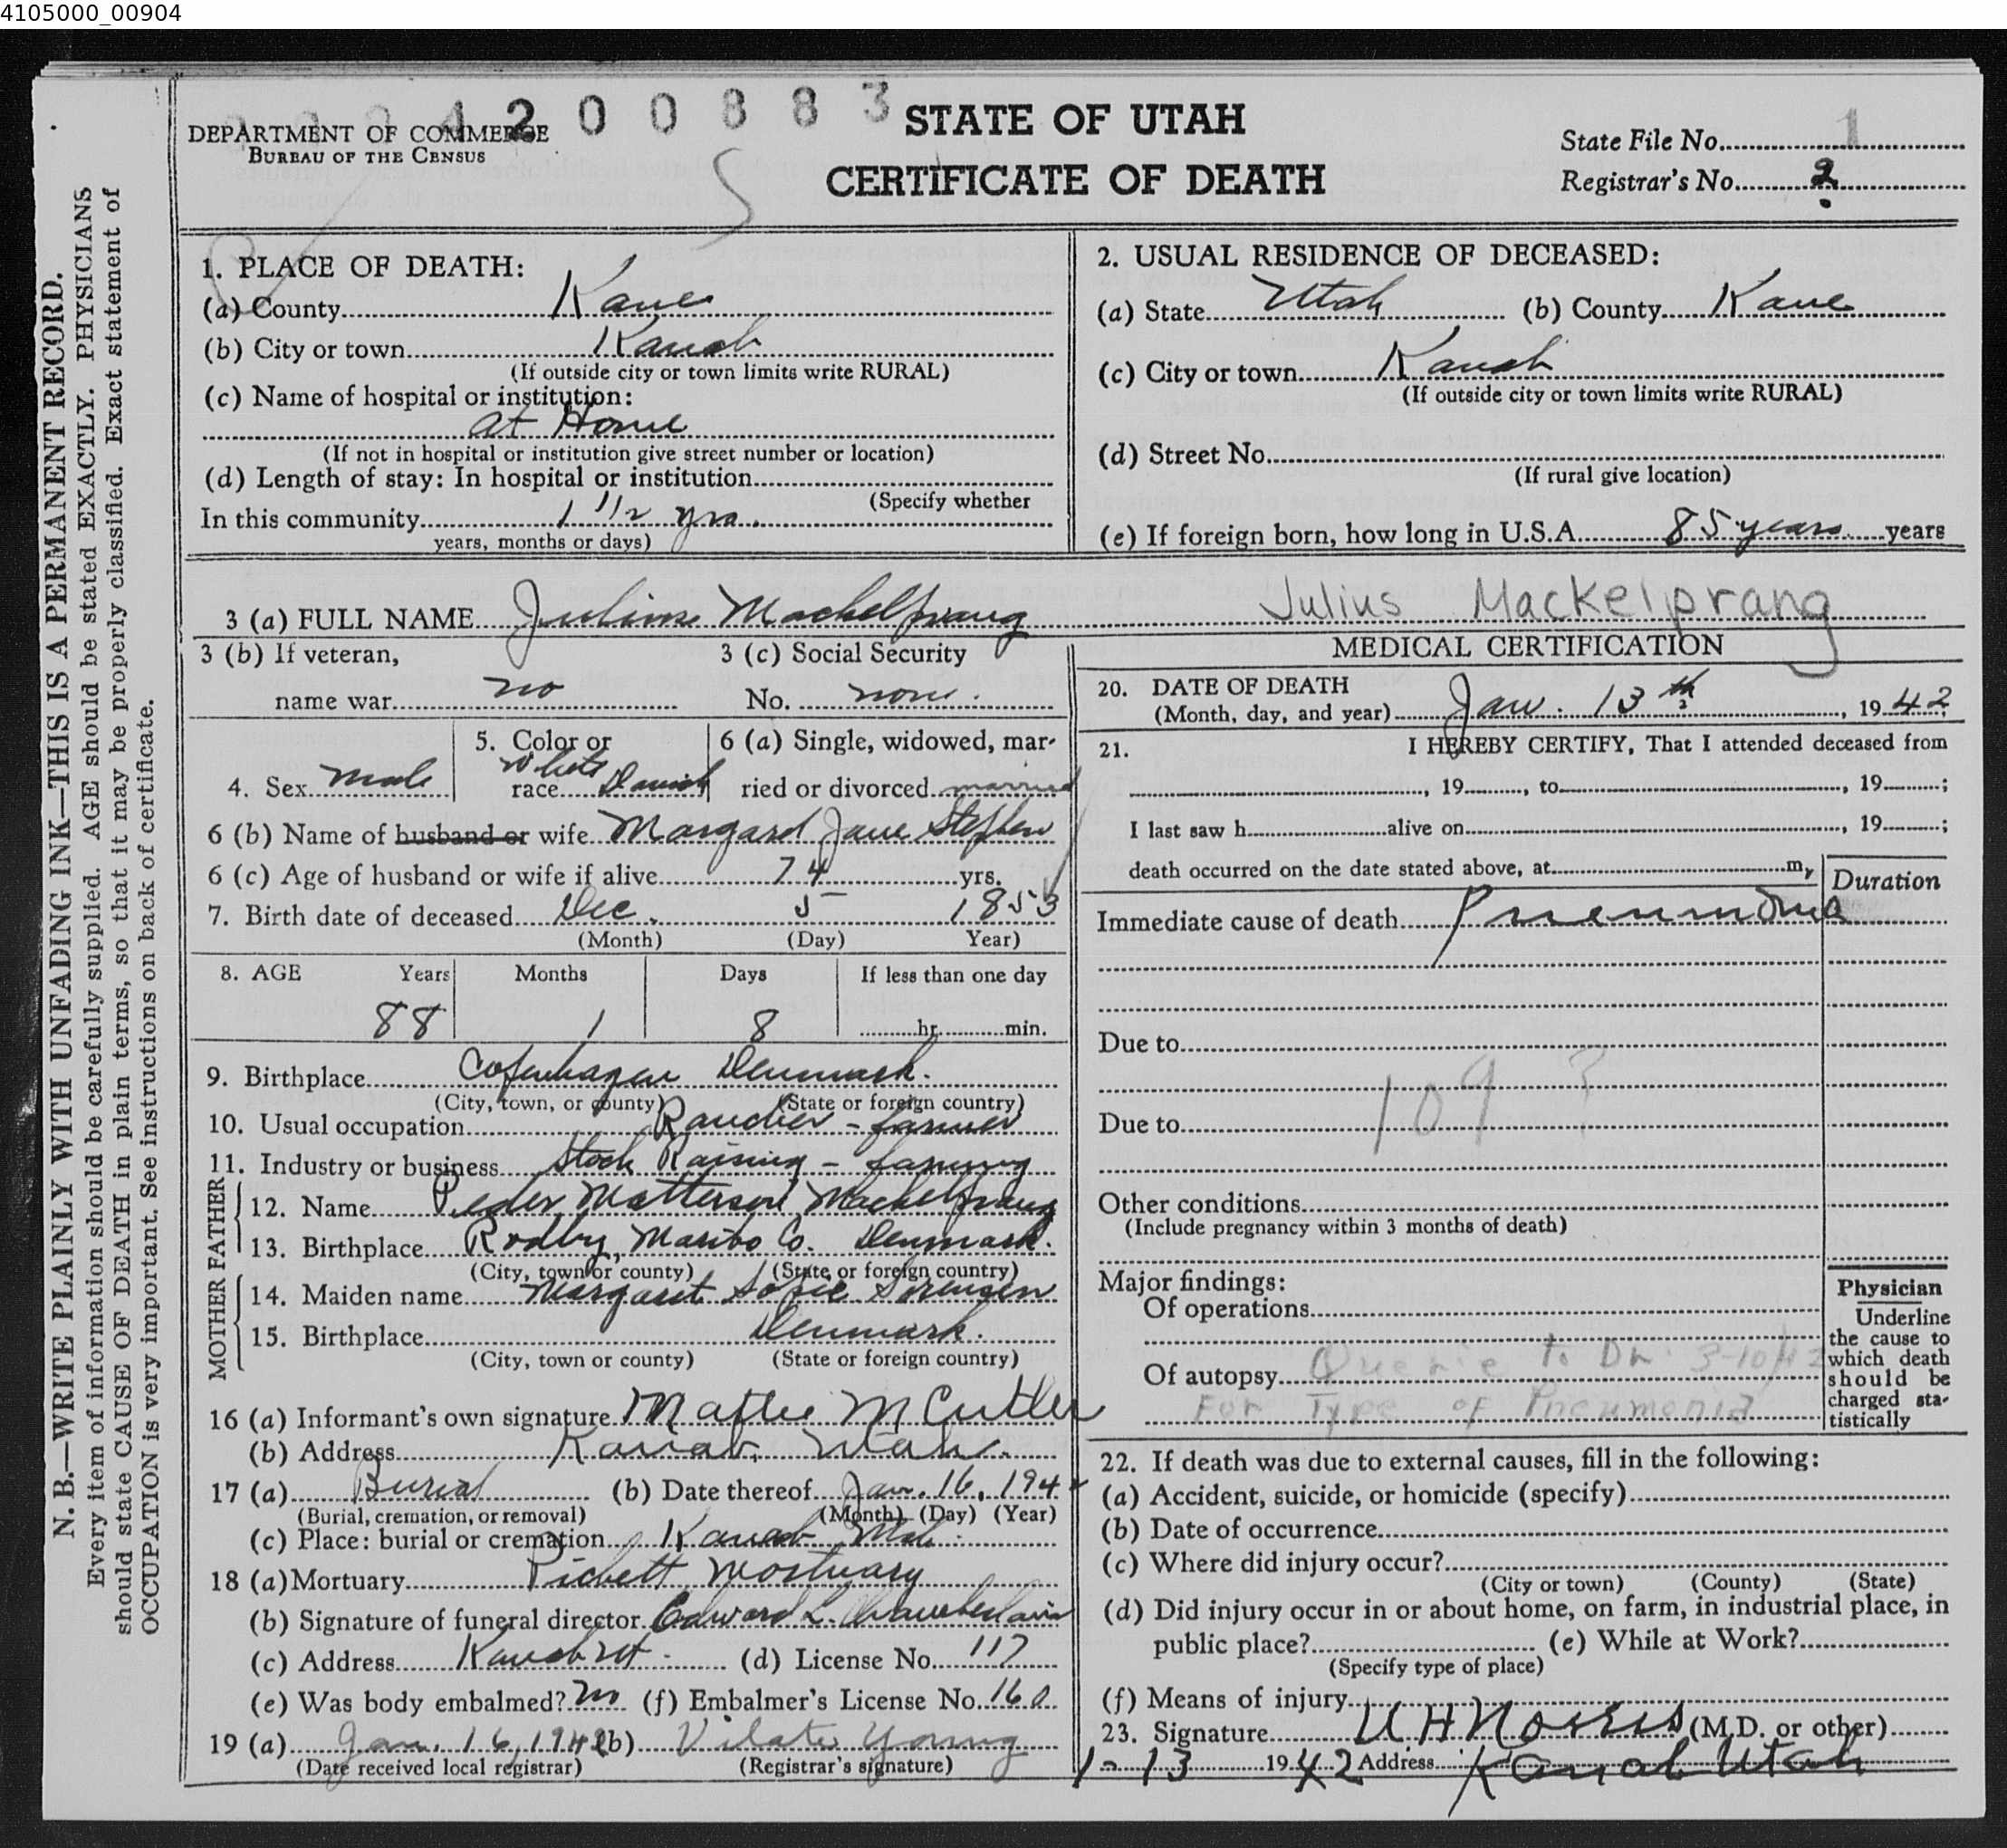 4105000_00904
4 2 0 0 8 8 3
DEPARTMENT OF COMMERCE
BUREAU OF THE CENSUS
STATE OF UTAH
CERTIFICATE OF DEATH
State File No. 1
Registrar's No. 2
N. B.—WRITE PLAINLY WITH UNFADING INK—THIS IS A PERMANENT RECORD.
Every item of information should be carefully supplied. AGE should be stated EXACTLY. PHYSICIANS
should state CAUSE OF DEATH in plain terms, so that it may be properly classified. Exact statement of
OCCUPATION is very important. See instructions on back of certificate.
1. PLACE OF DEATH:
(a) County Kane
(b) City or town Kanab
(If outside city or town limits write RURAL)
(c) Name of hospital or institution:
at Home
(If not in hospital or institution give street number or location)
(d) Length of stay: In hospital or institution
(Specify whether
In this community 1 1/2 yrs.
years, months or days)
2. USUAL RESIDENCE OF DECEASED:
(a) State Utah (b) County Kane
(c) City or town Kanab
(If outside city or town limits write RURAL)
(d) Street No.
(If rural give location)
(e) If foreign born, how long in U.S.A. 85 years years
3 (a) FULL NAME Julius Mackelprang Julius Mackelprang
3 (b) If veteran,
name war no
3 (c) Social Security
No. none.
4. Sex male
5. Color or
race White Danish
6 (a) Single, widowed, mar-
ried or divorced married
6 (b) Name of husband or wife Margard Jane Stephen
6 (c) Age of husband or wife if alive 74 yrs.
7. Birth date of deceased Dec. 5 1853
(Month) (Day) Year)
8. AGE Years Months Days If less than one day
88 1 8 hr. min.
9. Birthplace Copenhagen Denmark.
(City, town, or county) (State or foreign country)
10. Usual occupation Rancher - farmer
11. Industry or business Stock Raising - farming
FATHER
12. Name Peder Matterson Mackelprang
13. Birthplace Rodby, Maribo Co. Denmark.
(City, town or county) (State or foreign country)
MOTHER
14. Maiden name Margaret Sofie Sorensen
15. Birthplace Denmark.
(City, town or county) (State or foreign country)
16 (a) Informant's own signature Mattie M Cutler
(b) Address Kanab, Utah.
17 (a) Burial (b) Date thereof Jan. 16, 1942
(Burial, cremation, or removal) (Month) (Day) (Year)
(c) Place: burial or cremation Kanab Utah.
18 (a) Mortuary Pickett Mortuary
(b) Signature of funeral director Edward L. Chamberlain
(c) Address Kanab Ut. (d) License No. 117
(e) Was body embalmed? no (f) Embalmer's License No. 160
19 (a) Jan. 16, 1942 (b) Vilate Young
(Date received local registrar) (Registrar's signature)
MEDICAL CERTIFICATION
20. DATE OF DEATH
(Month, day, and year) Jan. 13th, 1942
21. I HEREBY CERTIFY, That I attended deceased from
, 19 , to , 19 ;
I last saw h alive on , 19 ;
death occurred on the date stated above, at m,
Duration
Immediate cause of death Pneumonia
Due to
109 ?
Due to
Other conditions
(Include pregnancy within 3 months of death)
Major findings:
Of operations
Of autopsy Querie to Dr. 3-10/42
For Type of Pneumonia
Physician
Underline
the cause to
which death
should be
charged sta-
tistically
22. If death was due to external causes, fill in the following:
(a) Accident, suicide, or homicide (specify)
(b) Date of occurrence
(c) Where did injury occur?
(City or town) (County) (State)
(d) Did injury occur in or about home, on farm, in industrial place, in
public place? (e) While at Work?
(Specify type of place)
(f) Means of injury
23. Signature U H Norris (M.D. or other)
1-13 1942 Address Kanab Utah